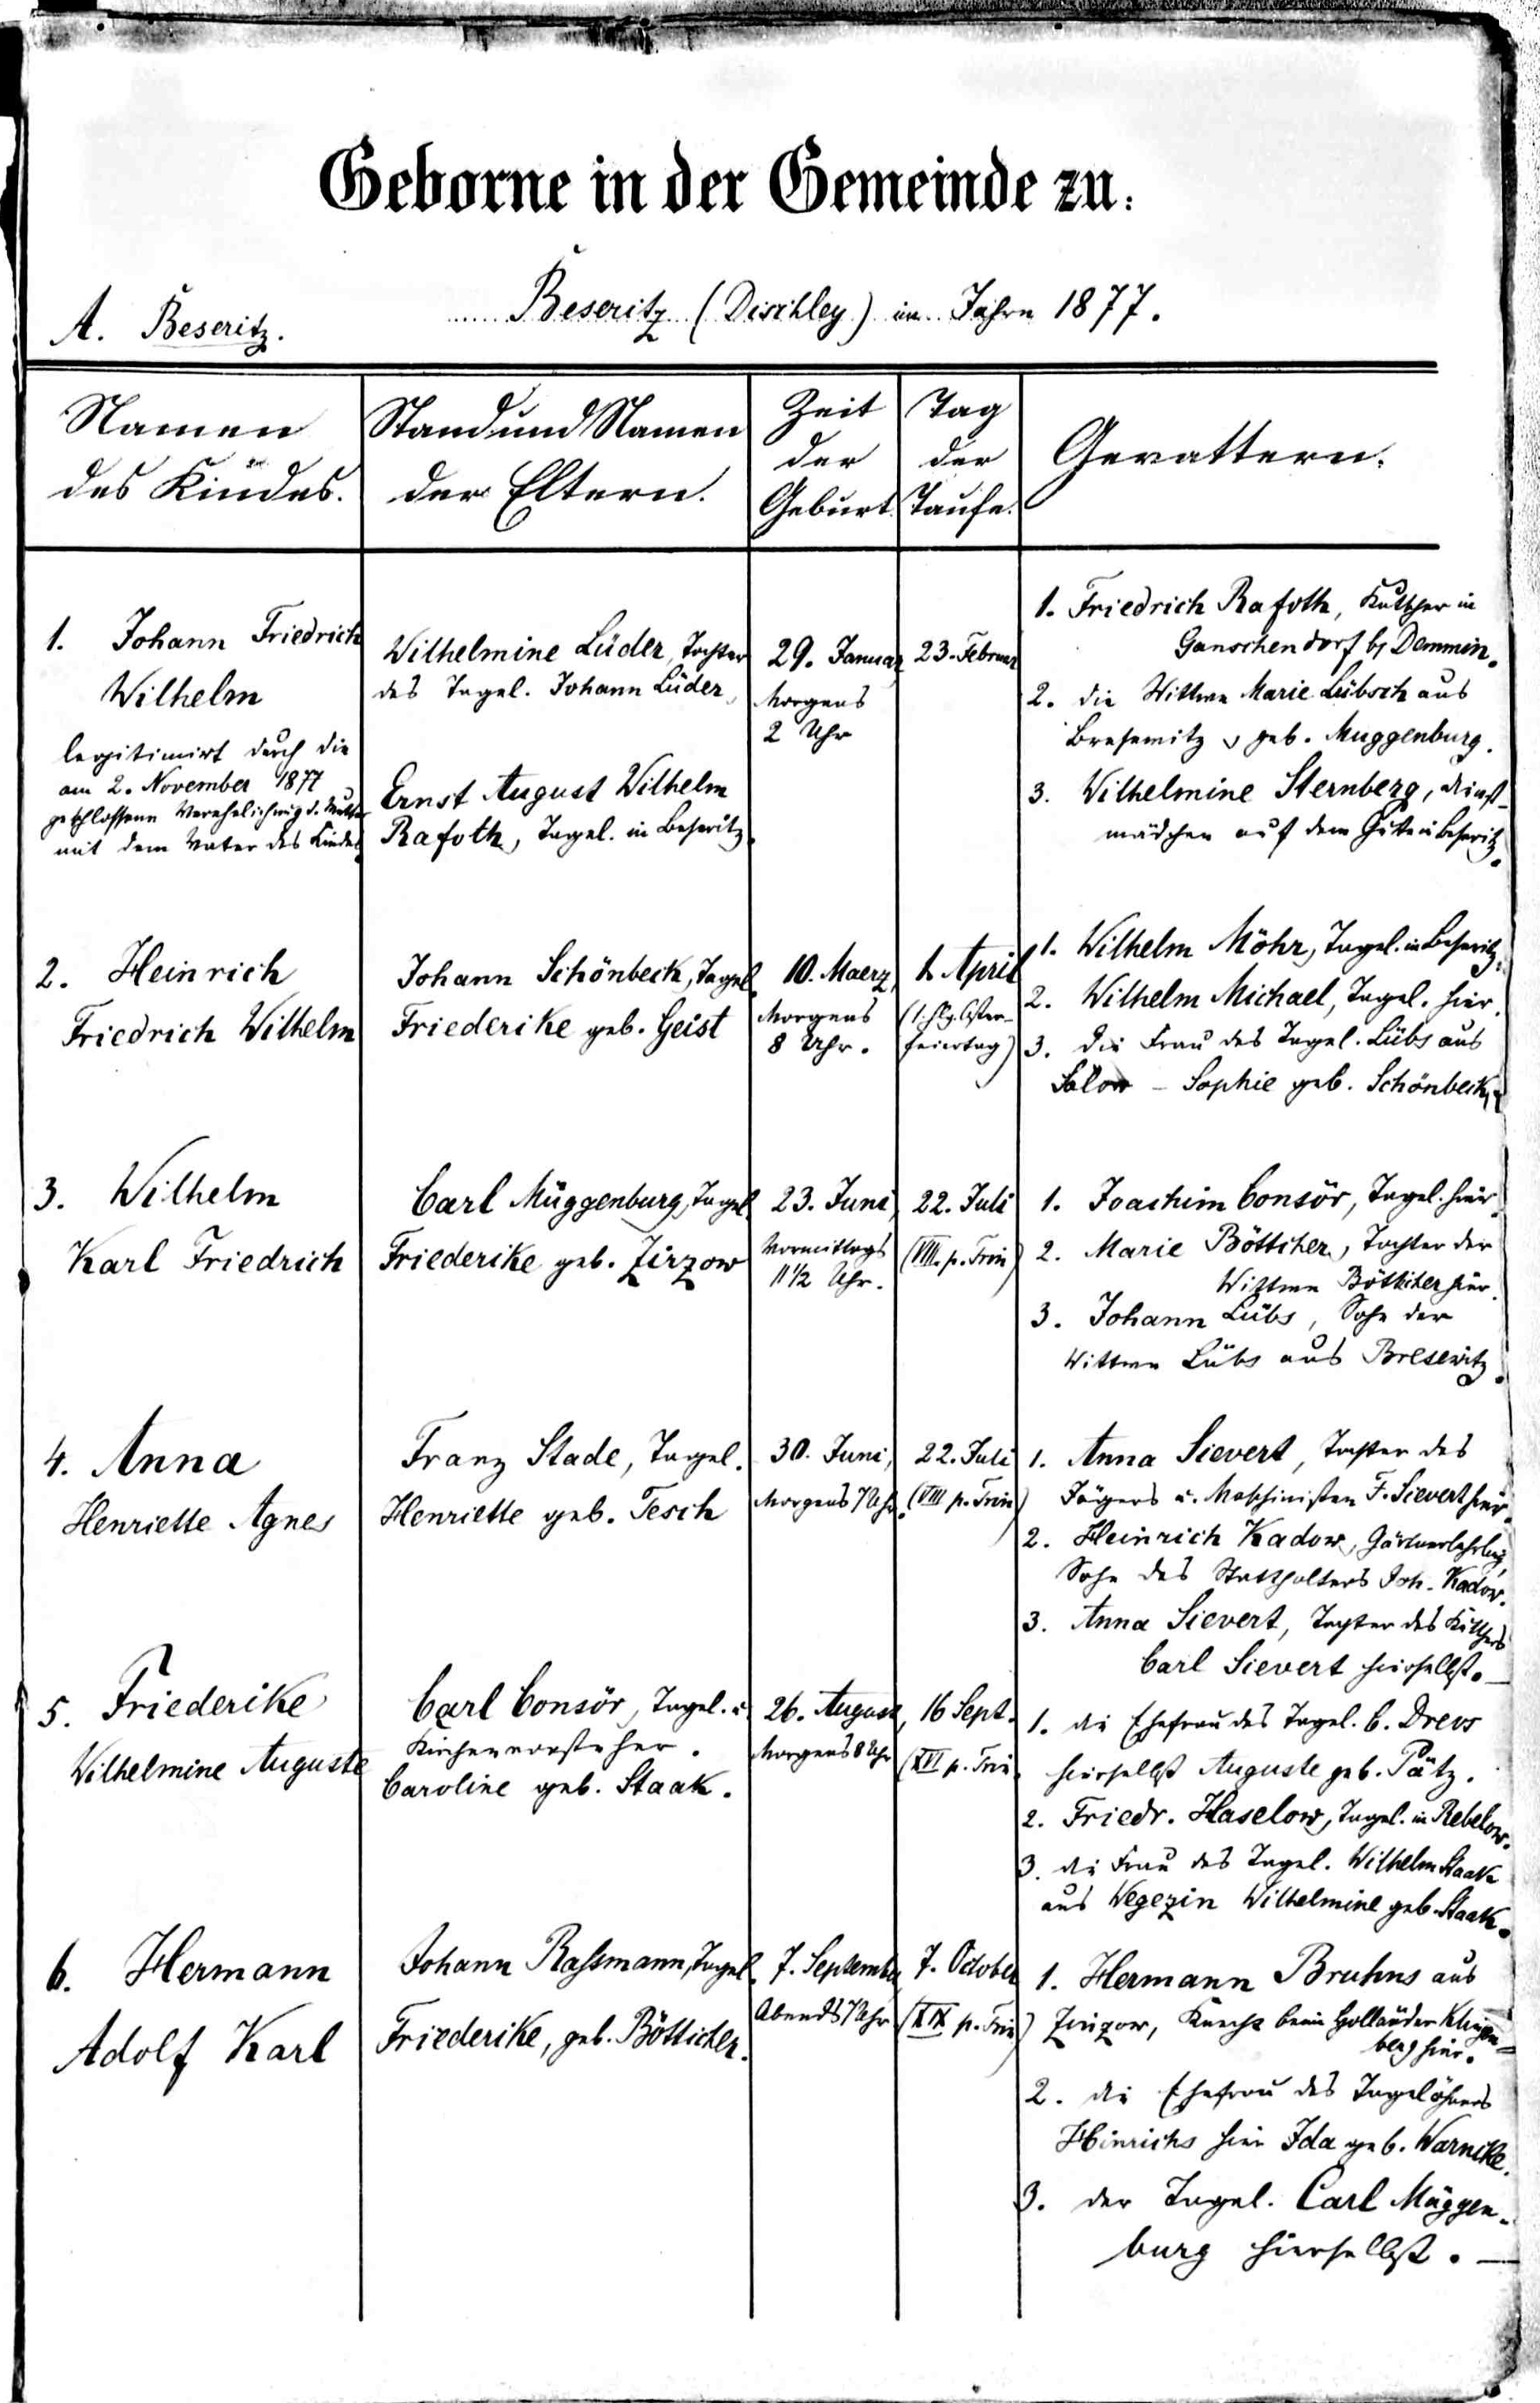 Geborne in der Gemeinde zu:
A. Beseritz.
Beseritz (Dischley) im Jahre 1877.
Namen
des Kindes.
Stand und Namen
der Eltern.
Zeit
der
Geburt.
Tag
der
Taufe.
Gevattern.
1. Johann Friedrich
Wilhelm
legitimirt durch die
am 2. November 1877
geschlossene Verehelichung d. Mutter
mit dem Vater des Kindes
Wilhelmine Lüder, Tochter
des Tagel. Johann Lüder,
Ernst August Wilhelm
Rafoth, Tagel. in Beseritz.
29. Januar,
Morgens
2 Uhr
23. Februar
1. Friedrich Rafoth, Kutscher in
Ganschendorf bj Demmin.
2. die Wittwe Marie Lübsch aus
Bresewitz, geb. Muggenburg.
3. Wilhelmine Sternberg, Dienst-
mädchen auf dem Gute in Beseritz.
2. Heinrich
Friedrich Wilhelm
Johann Schönbeck, Tagel.
Friederike geb. Geist
10. Maerz,
Morgens
8 Uhr.
1. April
(1. hlg. Oster-
feiertag)
1. Wilhelm Möhr, Tagel. in Beseritz.
2. Wilhelm Michael, Tagel. hier.
3. Die Frau des Tagel. Lübs aus
Salow - Sophie geb. Schönbeck.
3. Wilhelm
Karl Friedrich
Carl Müggenburg, Tagel.
Friederike geb. Zirzow
23. Juni,
Vormittags
11 1/2 Uhr.
22. Juli
(VIII. p. Trin)
1. Joachim Consör, Tagel. hier.
2. Marie Böttcher, Tochter der
Wittwe Böttcher hier.
3. Johann Lübs, Sohn der
Wittwe Lübs aus Bresewitz.
4. Anna
Henriette Agnes
Franz Stade, Tagel.
Henriette geb. Tesch
30. Juni,
Morgens 7 Uhr.
22. Juli
(VIII p. Trin)
1. Anna Sievert, Tochter des
Jägers u. Maschinisten F. Sievert hier.
2. Heinrich Kadow, Gärtnerlehrling,
Sohn des Statthalters Joh. Kadow.
3. Anna Sievert, Tochter des Kutschers
Carl Sievert hierselbst.
5. Friederike
Wilhelmine Auguste
Carl Consör, Tagel. u.
Kirchenvorsteher.
Caroline geb. Staak.
26. August,
Morgens 8 Uhr
16 Sept.
(XVI p. Trin.
1. die Ehefrau des Tagel. C. Drews
hierselbst Auguste geb. Pätz.
2. Friedr. Haselow, Tagel. in Rebelow.
3. die Frau des Tagel. Wilhelm Staak
aus Wegezin Wilhelmine geb. Staak.
6. Hermann
Adolf Karl
Johann Rassmann, Tagel.
Friederike, geb. Bötticher.
7. September,
Abends 7 Uhr
7. October
(XIX p. Trin)
1. Hermann Bruhns aus
Zinzow, Knecht beim Holländer Klingen-
berg hier.
2. die Ehefrau des Tagelöhners
Hinrichs hier Ida geb. Warnke.
3. der Tagel. Carl Müggen-
burg hierselbst.